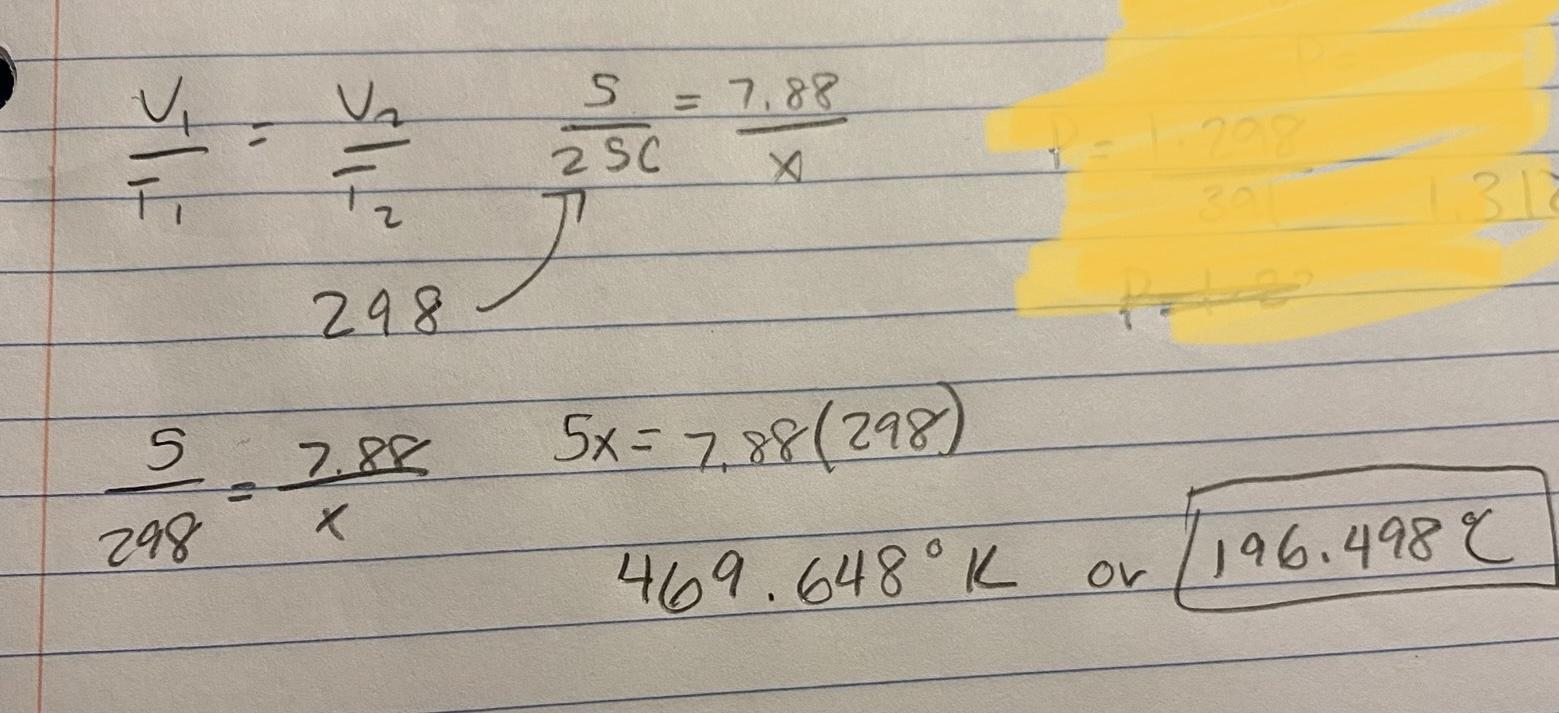 V₁/T₁ = V₂/T₂ 5/25C = 7.88/x
298
5/298 = 7.88/x 5x = 7.88(298)
469.648°K or 196.498℃
P = 1.298
391 1.318